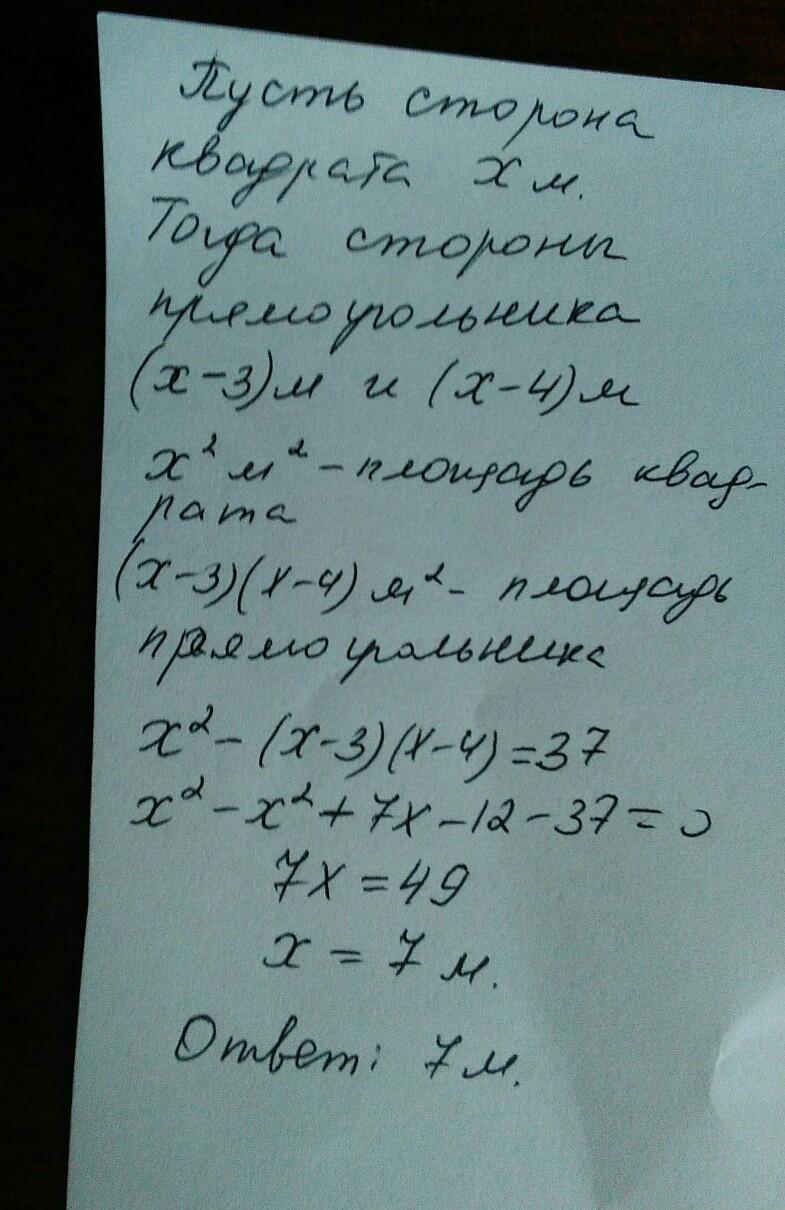 Пусть сторона
квадрата x м.
Тогда стороны
прямоугольника
(x-3)м и (x-4)м
x² м² - площадь квад-
рата
(x-3)(x-4) м² - площадь
прямоугольника
x² - (x-3)(x-4) = 37
x² - x² + 7x - 12 - 37 = 0
7x = 49
x = 7 м.
Ответ: 7 м.